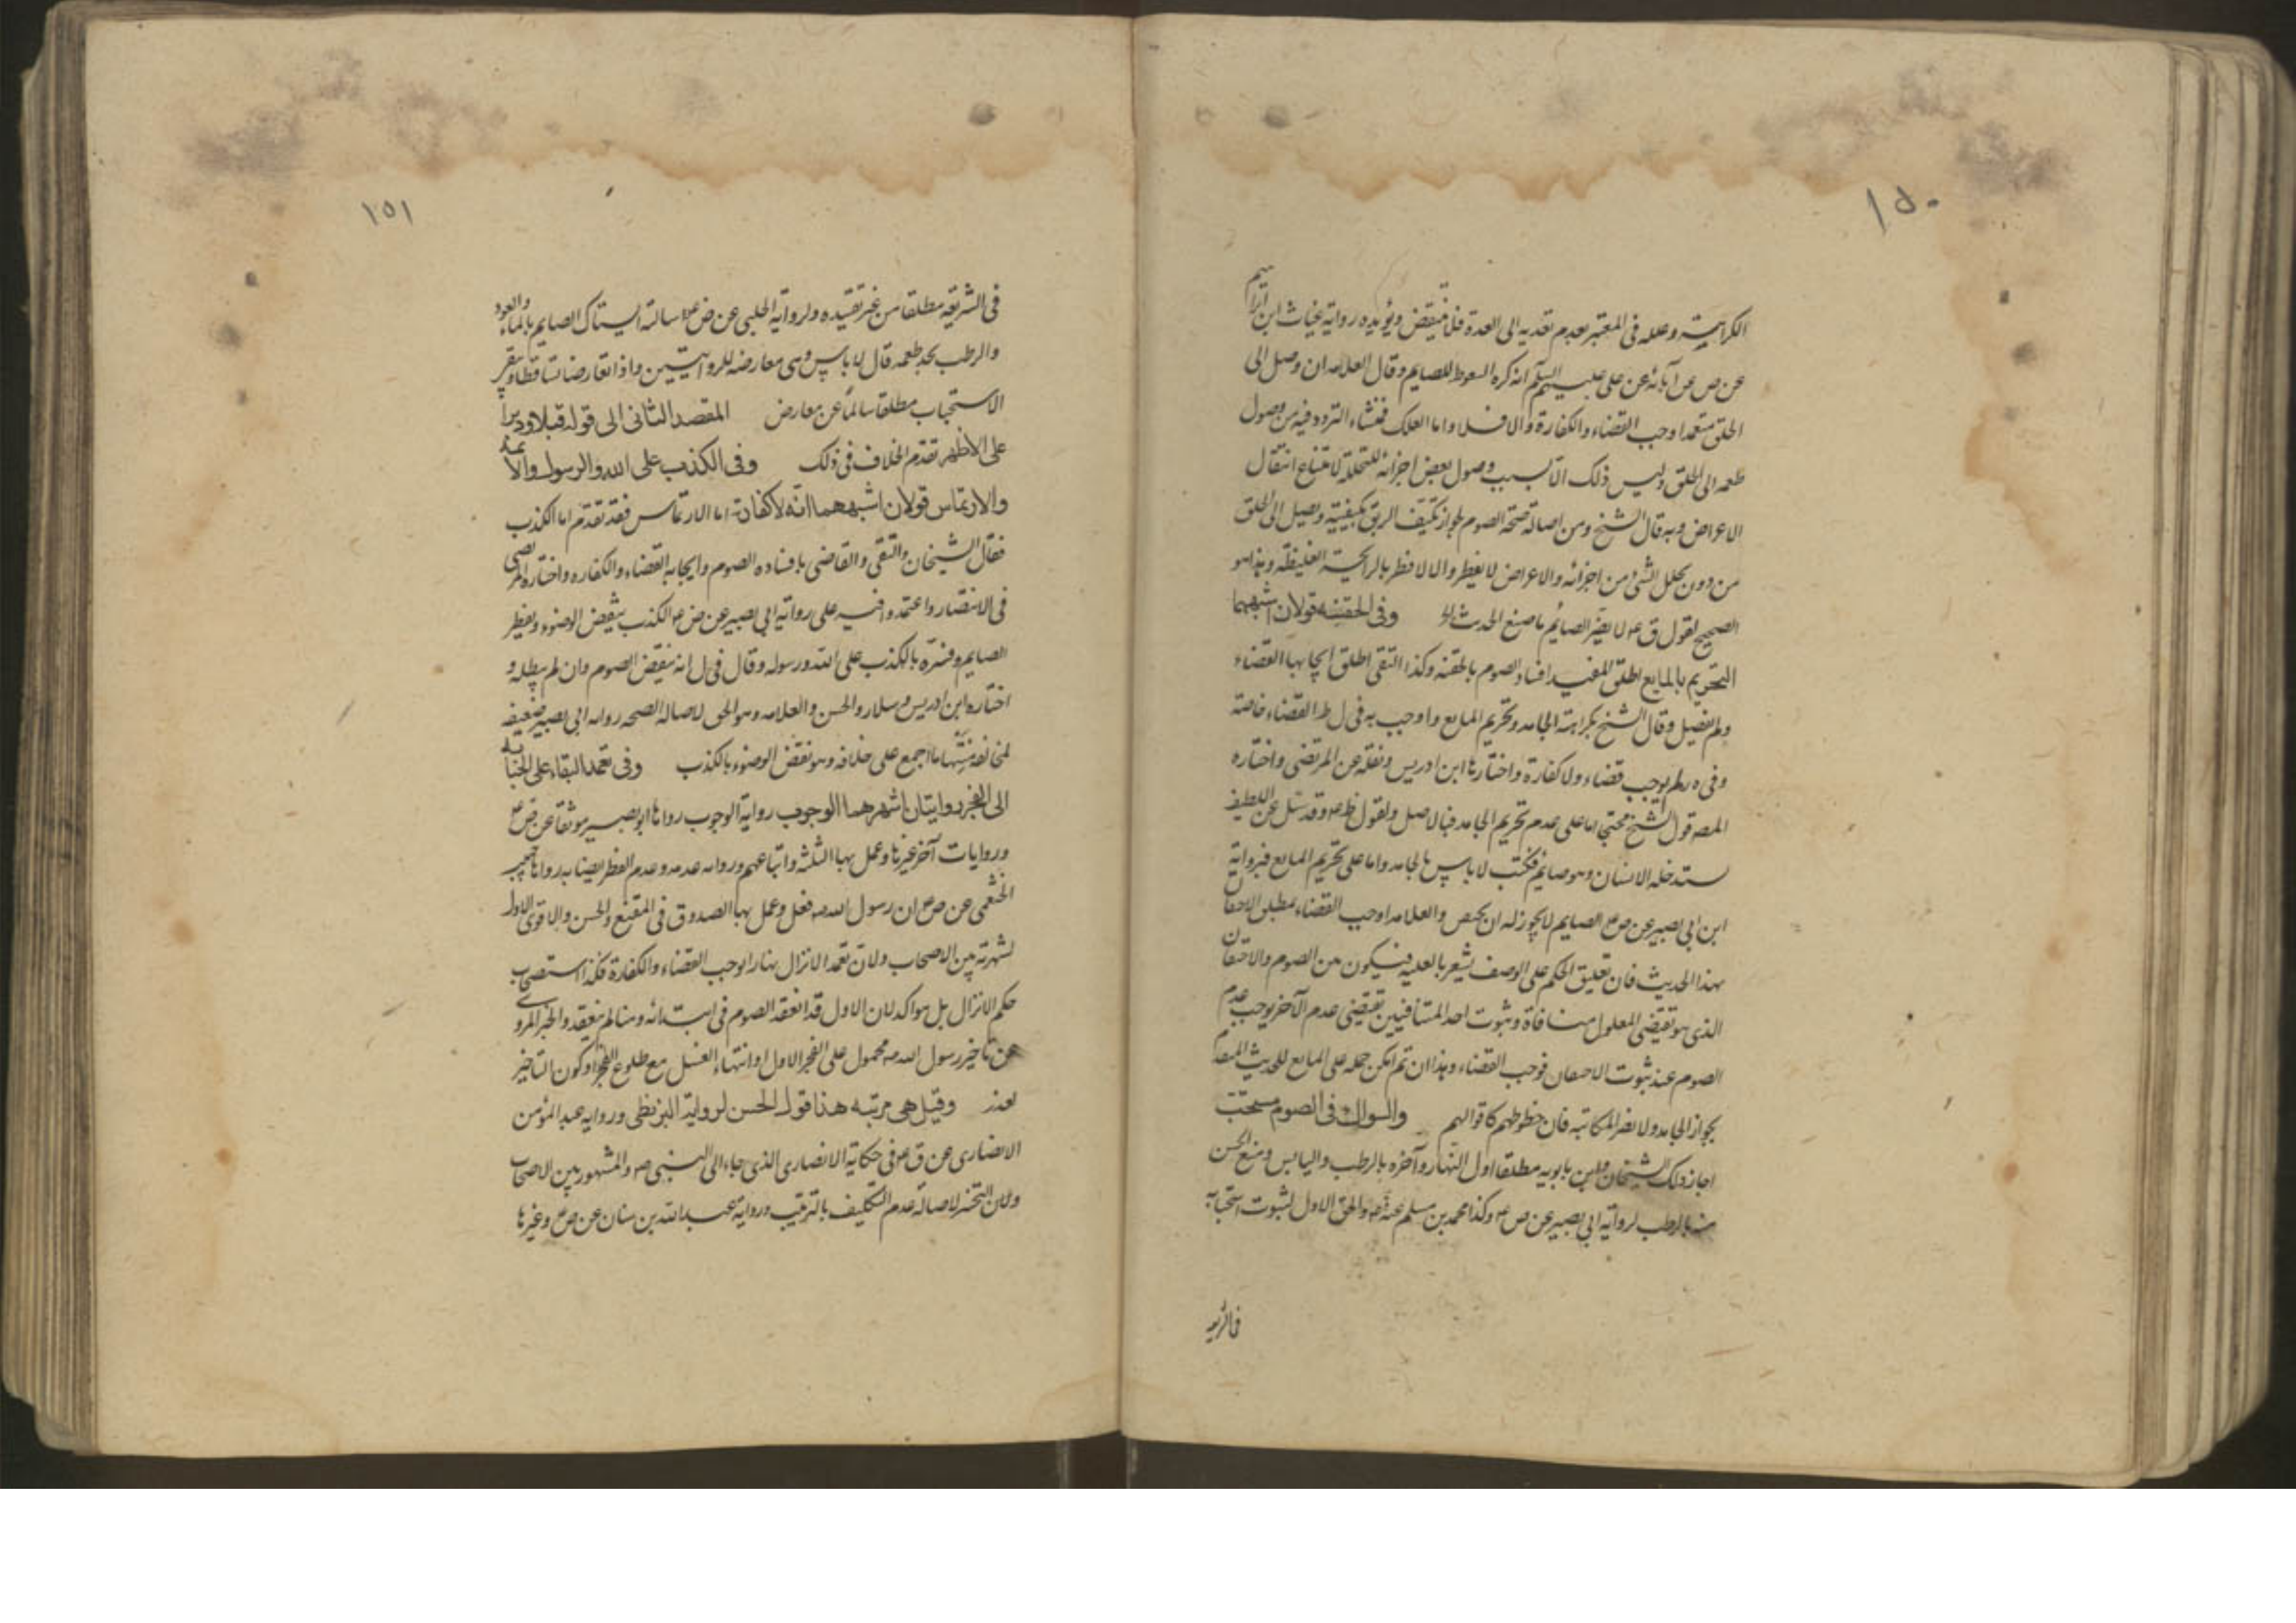 ١٥٠
الكراهية وعلله فى المعتبر بعدم تعديه الى المعدة فلا ينقض ويؤيده رواية غياث ابن ابراهيم
عن ص عن آبائه عن على عليهم السلم انه كره السعوط للصايم وقال العلامه ان وصل الى
الحلق متعمدا وجب القضاء والكفارة والا فلا واما العلك فمنشاء التردد فيه من وصول
طعمه الى الحلق وليس ذلك الا بسبب وصول بعض اجزائه المتحللة لامتناع انتقال
الاعراض وبه قال الشيخ ومن اصالة صحة الصوم لجواز تكيف الريق بكيفيته ويصل الى الحلق
من دون تحلل الشئ من اجزائه والاعراض لا يفطر والا لافطر بالرايحة الغليظة وهذا هو
الصحيح لقول ق ع لا يضر الصايم ما صنع الحديث وفى الحقنه قولان اشبههما
التحريم بالمايع اطلق المفيد افساد الصوم بالحقنه وكذا التقى اطلق ايجابها القضاء
ولم يفصل وقال الشيخ بكراهة الجامد وتحريم المايع واوجب به فى ل ط القضاء خاصة
وفى ه ولم يوجب قضاء ولا كفارة واختارها ابن ادريس ونقله عن المرتضى واختاره
المصه قول الشيخ محتجا اما على عدم تحريم الجامد فبالاصل ولقول ظم ع وقد سئل عن اللطيف
يستدخله الانسان وهو صايم فكتب لا باس بالجامد واما على تحريم المايع فبرواية
ابن ابى بصير عن ص ع الصايم لا يجوز له ان يحتقن والعلامه اوجب القضاء بمطلق الاحتقان
بهذا الحديث فان تعليق الحكم على الوصف يشعر بالعليه فيكون بين الصوم والاحتقان
الذى هو نقيض المعلول منافاة وثبوت احد المتنافيين يقتضى عدم الآخر يوجب عدم
الصوم عند ثبوت الاحتقان فوجب القضاء وهذا ان تم امكن حمله على المايع للحديث المصرح
بجواز الجامد ولا يضر المكاتبه فان خطوطهم كاقوالهم والسواك فى الصوم مستحب
اجاز ذلك الشيخان وابن بابويه مطلقا اول النهار وآخره بالرطب واليابس ومنع الحسن
منه بالرطب لرواية ابى بصير عن ص ع وكذا محمد بن مسلم عنه ع والحق الاول لثبوت استحبابه
فى الشريعه
١٥١
فى الشريعه مطلقا من غير تقييده ولرواية الحلبى عن ص ع سالته ايستاك الصايم بالماء والعود
والرطب يجد طعمه قال لا باس وهى معارضه للروايتين واذا تعارضا تساقطا وبقى
الاستحباب مطلقا سالماً عن معارض المقصد الثانى الى قوله قبلا ودبراً
على الاظهر تقدم الخلاف فى ذلك وفى الكذب على الله والرسول والائمه
والارتماس قولان اشبههما انه لا كفارة اما الارتماس فقد تقدم اما الكذب
فقال الشيخان والتقى والقاضى بافساده الصوم وايجابه القضاء والكفاره واختاره المرتضى
فى الانتصار واعتمدوا فيه على رواية ابى بصير عن ص ع الكذب ينقض الوضوء ويفطر
الصايم وفسره بالكذب على الله ورسوله وقال فى ل انه ينقض الصوم وان لم يبطله و
اختاره ابن ادريس وسلار والحسن والعلامه وهو الحق لاصالة الصحه روايه ابى بصير ضعيفه
لمخالفة متنها ما اجمع على خلافه وهو نقض الوضوء بالكذب وفى تعمد البقاء على الجنابه
الى الفجر روايتان اشهرهما الوجوب رواية الوجوب رواها ابو بصير موثقا عن ص ع
وروايات آخر غيرها وعمل بها الثلثه واتباعهم وروايه عدمه وعدم الفطر ايضا به رواها حبيب
الخثعمى عن ص ع ان رسول الله ص فعل وعمل بها الصدوق فى المقنع والحسن والاقوى الاول
لشهرته بين الاصحاب ولان تعمد الانزال نهارا يوجب القضاء والكفارة فكذا استصحاب
حكم الانزال بل هو اكد لان الاول قد انعقد الصوم فى ابتدائه وهنا لم ينعقد والخبر المروى
عن تاخير رسول الله ص محمول على الفجر الاول او انتهاء الغسل مع طلوع الفجر او كون التاخير
لعذر وقيل هى مرتبه هذا قول الحسن لرواية البزنطى وروايه عبد المؤمن
الانصارى عن ق ع فى حكاية الانصارى الذى جاء الى النبى ص والمشهور بين الاصحاب
ولان التخيير لاصالة عدم التكليف بالترتيب ورواية عبد الله بن سنان عن ص ع وغيرها